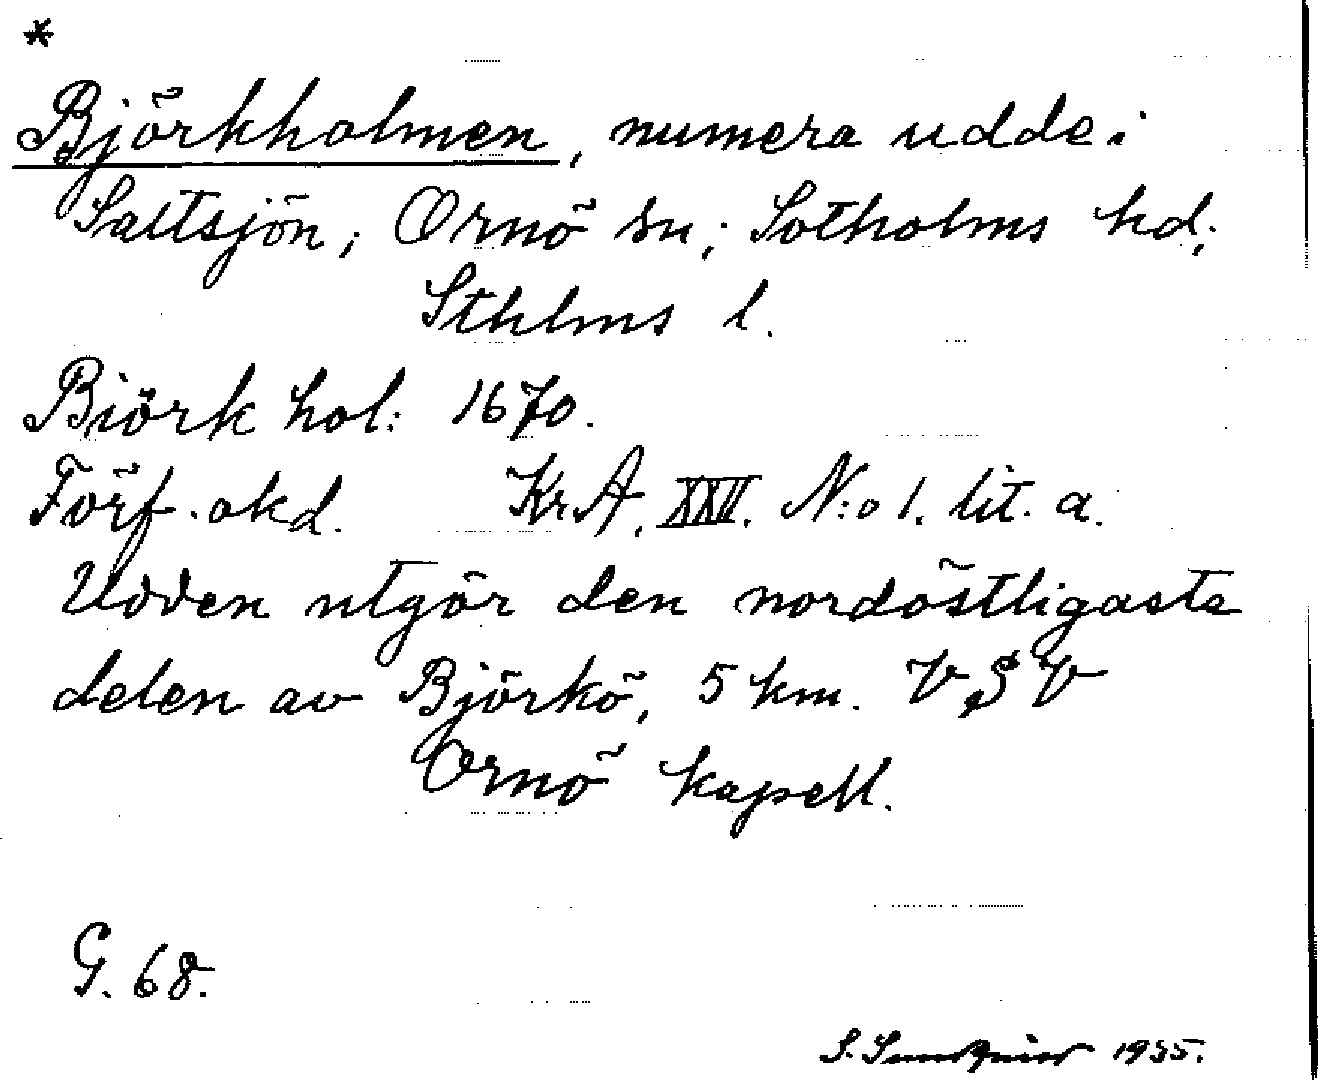 *
Björkholmen, numera udde i
Saltsjön; Ornö sn; Sotholms hd;
Sthlms l.
Biörk hol: 1670.
Förf. okd. Kr A. XXII. N:o 1. lit. a.
Udden utgör den nordöstligaste
delen av Björkö, 5 km. VSV
Ornö kapell.
G. 68.
S. 1955.